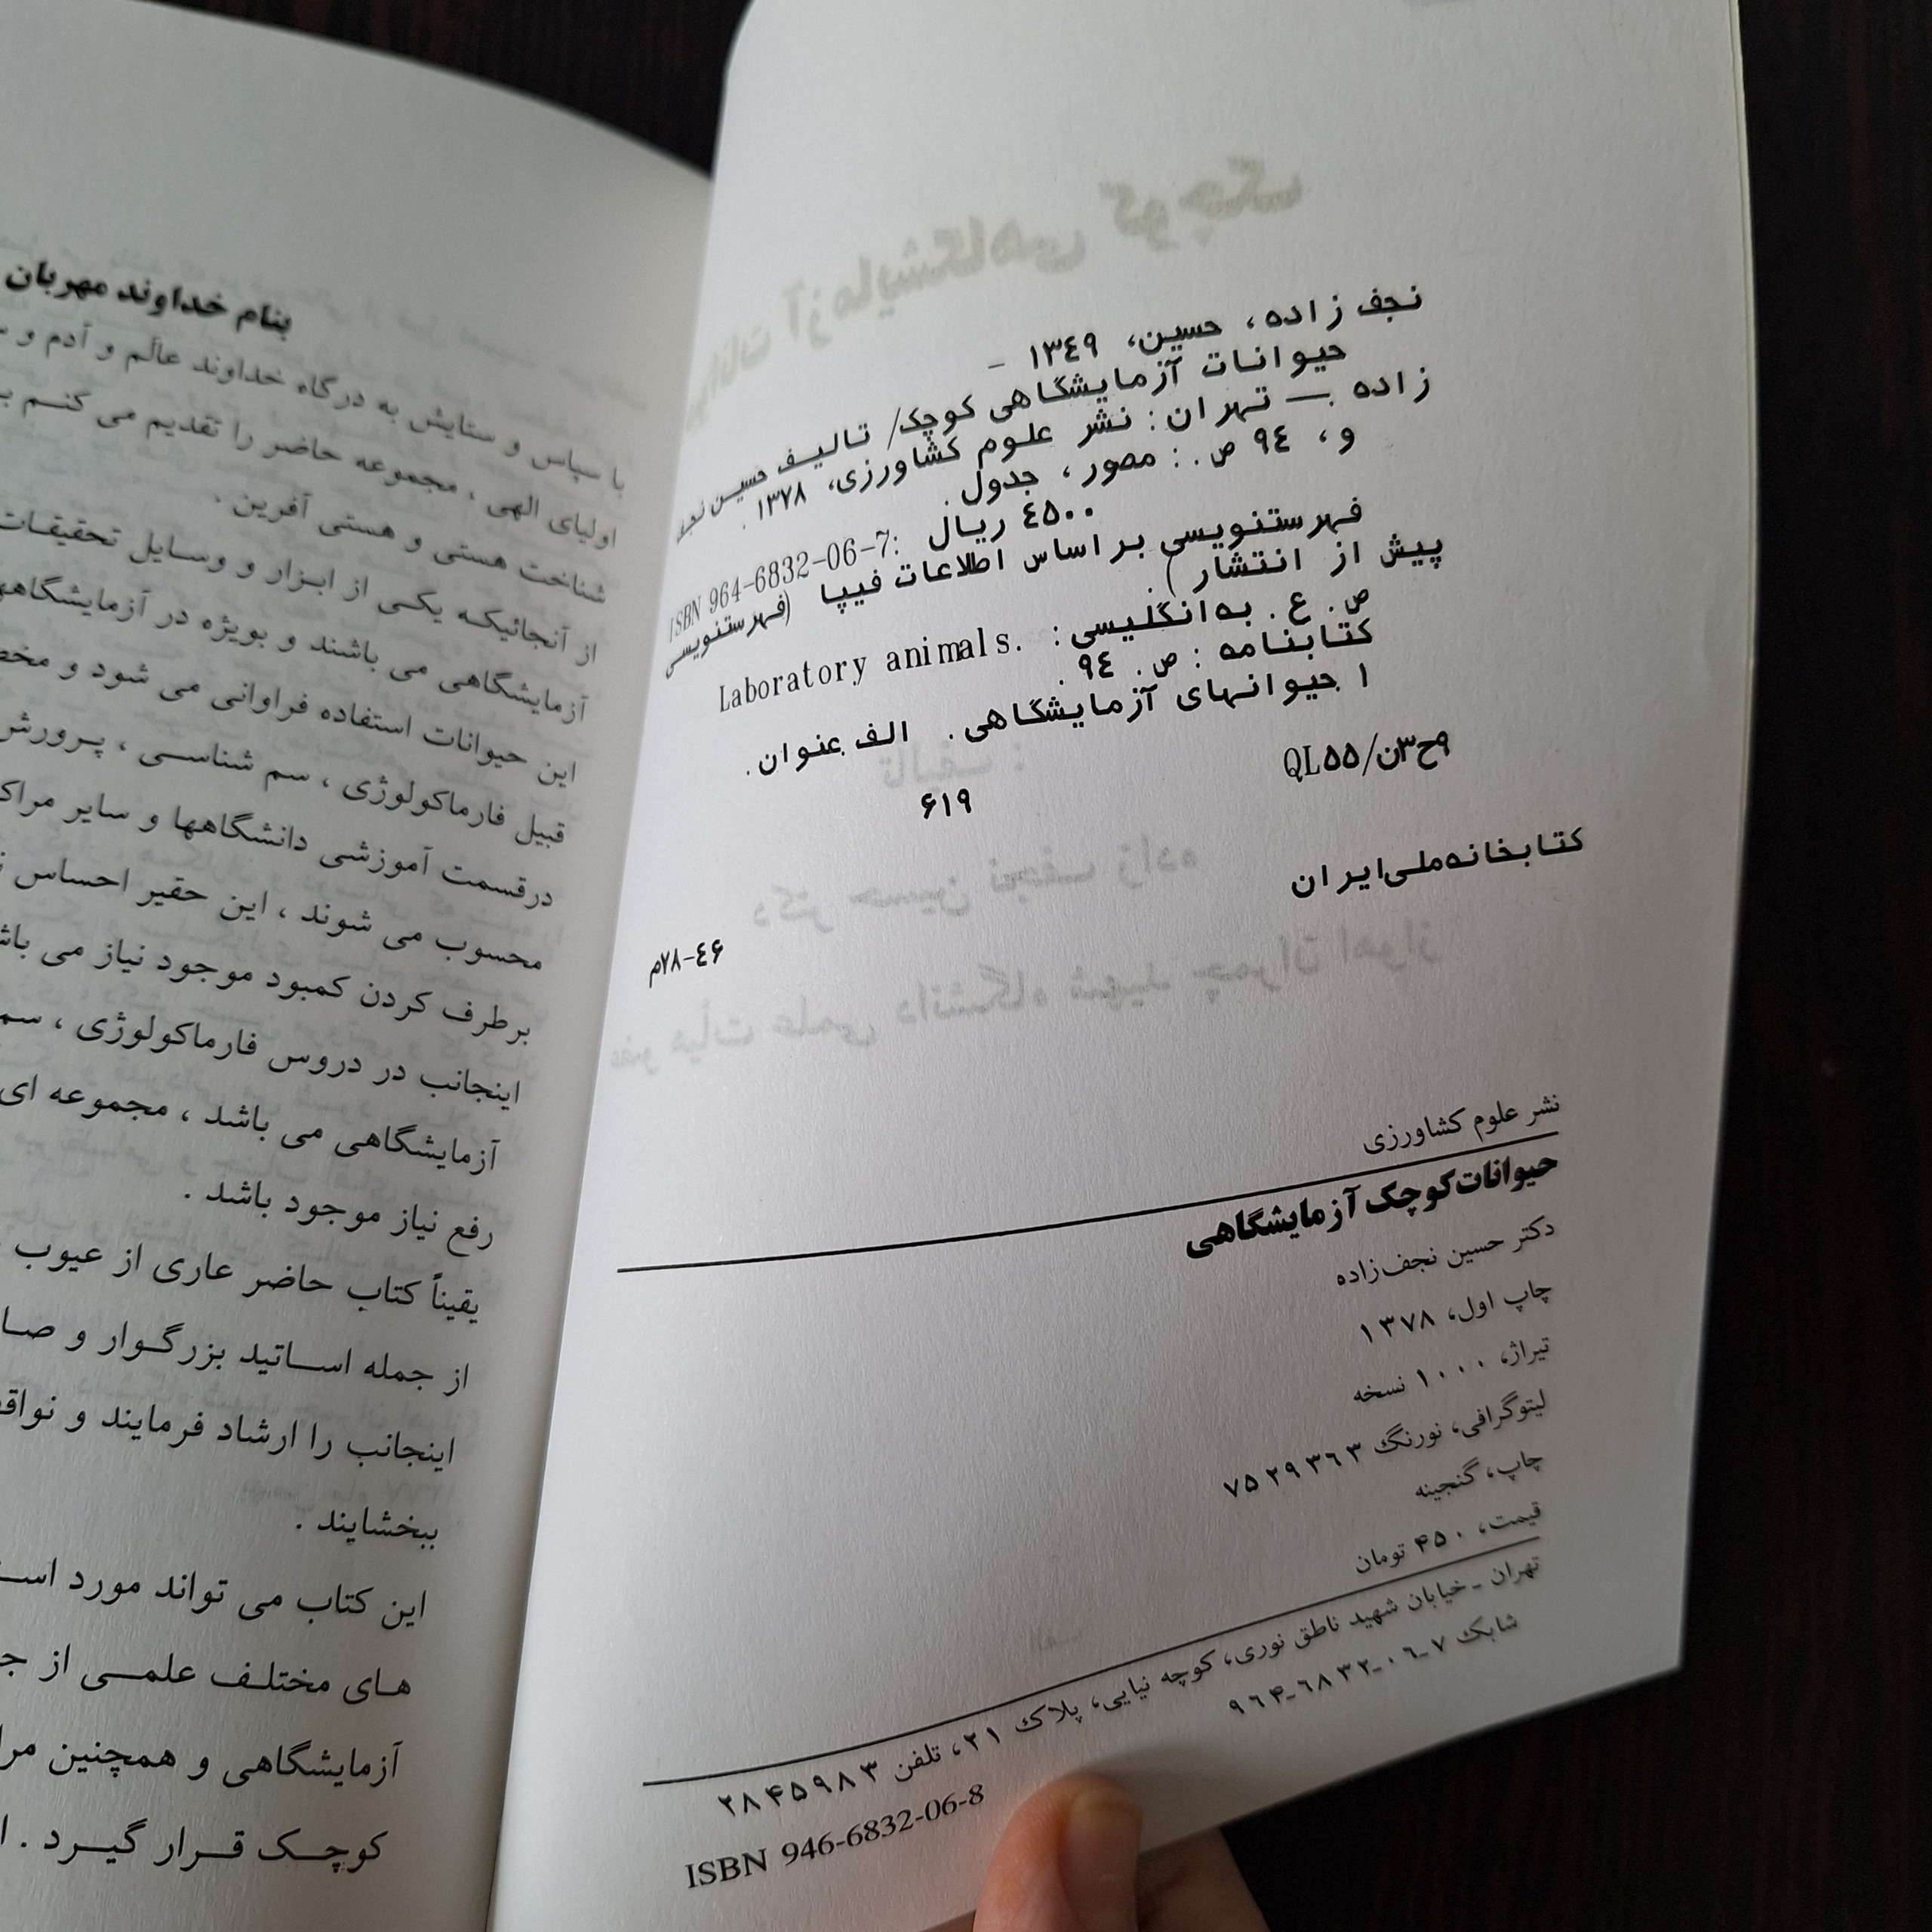 نجف زاده، حسین، ۱۳٤۹ -
حیوانات آزمایشگاهی کوچک/ تالیف حسین نجف
زاده .— تهران: نشر علوم کشاورزی، ۱۳۷۸ .
و، ۹٤ ص. : مصور، جدول.
ISBN 964-6832-06-7: ٤۵۰۰ ریال
فهرستنویسی بر اساس اطلاعات فیپا (فهرستنویسی
پیش از انتشار ).
ص. ع. به انگلیسی: Laboratory animals.
کتابنامه : ص. ۹٤ .
۱ .حیوانهای آزمایشگاهی . الف.عنوان.
۹ح۳ن/QL۵۵
۶۱۹
کتابخانه ملی ایران
۷۸-٤۶م
نشر علوم کشاورزی
حیوانات کوچک آزمایشگاهی
دکتر حسین نجف‌زاده
چاپ اول، ۱۳۷۸
تیراژ، ۱۰۰۰ نسخه
لیتوگرافی، نورنگ ۷۵۲۹۳۶۳
چاپ، گنجینه
قیمت، ۴۵۰ تومان
تهران ـ خیابان شهید ناطق نوری، کوچه نیایی، پلاک ۲۱، تلفن ۲۸۴۵۹۸۳
شابک ۷-۰۶-۶۸۳۲-۹۶۴
ISBN 946-6832-06-8
بنام خداوند مهربان
با سپاس و ستایش به درگاه خداوند عالم و آدم و
اولیای الهی ، مجموعه حاضر را تقدیم می کنم
شناخت هستی و هستی آفرین .
از آنجائیکه یکی از ابزار و وسایل تحقیقات
آزمایشگاهی می باشند و بویژه در آزمایشگاهها
این حیوانات استفاده فراوانی می شود و
قبیل فارماکولوژی ، سم شناسی ، پرورش
درقسمت آموزشی دانشگاهها و سایر
محسوب می شوند ، این حقیر احساس
برطرف کردن کمبود موجود نیاز می
اینجانب در دروس فارماکولوژی ،
آزمایشگاهی می باشد ، مجموعه ای
رفع نیاز موجود باشد .
یقیناً کتاب حاضر عاری از عیوب
از جمله اساتید بزرگوار و
اینجانب را ارشاد فرمایند و
ببخشایند .
این کتاب می تواند مورد
های مختلف علمی از
آزمایشگاهی و همچنین
کوچک قرار گیرد .